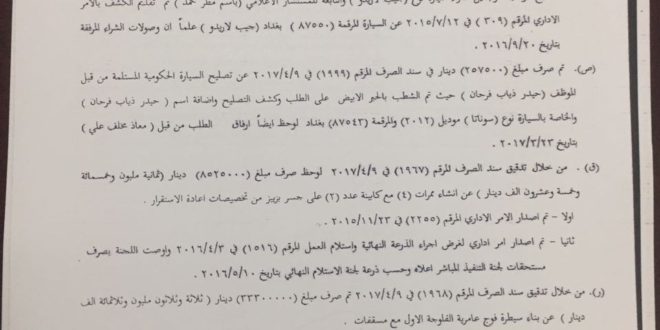 (جيب لاريدو) والتابعة للمستشار الاعلامي (باسم مطر حمد) تم تقديم الكشف بالأمر
الاداري المرقم (٣٠٩) في ٢٠١٥/٧/١٢ عن السيارة المرقمة (٨٧٥٥٠) بغداد (جيب لاريدو) علماً ان وصولات الشراء المرفقة
بتاريخ ٢٠١٦/٩/٢٠ .
(ص). تم صرف مبلغ (٢٥٧٥٠٠) دينار في سند الصرف المرقم (١٩٩٩) في ٢٠١٧/٤/٩ عن تصليح السيارة الحكومية المستلمة من قبل
الموظف (حيدر ذياب فرحان) حيث تم الشطب بالحبر الابيض على الطلب وكشف التصليح واضافة اسم (حيدر ذياب فرحان)
والخاصة بالسيارة نوع (سوناتا) موديل (٢٠١٢) والمرقمة (٨٧٥٤٣) بغداد لوحظ ايضاً ارفاق الطلب من قبل (معاذ مخلف علي)
بتاريخ ٢٠١٧/٣/٢٣ .
(ق). من خلال تدقيق سند الصرف المرقم (١٩٦٧) في ٢٠١٧/٤/٩ لوحظ صرف مبلغ (٨٥٢٥٠٠٠) دينار (ثمانية مليون وخمسمائة
وخمسة وعشرون الف دينار) عن انشاء ممرات (٤) مع كابينة عدد (٢) على جسر بزيبز من تخصيصات اعادة الاستقرار .
اولا – تم اصدار الامر الاداري المرقم (٢٢٥٥) في ٢٠١٥/١١/٢٣
ثانيا – تم اصدار امر اداري لغرض اجراء الذرعة النهائية واستلام العمل المرقم (١٥١٦) في ٢٠١٦/٤/٣ واوصت اللجنة بصرف
مستحقات لجنة التنفيذ المباشر اعلاه وحسب ذرعة لجنة الاستلام النهائي بتاريخ ٢٠١٦/٥/١٠ .
(ر). من خلال تدقيق سند الصرف المرقم (١٩٦٨) في ٢٠١٧/٤/٩ تم صرف مبلغ (٣٣٣٠٠٠٠٠) دينار (ثلاثة وثلاثون مليون وثلاثمائة الف
دينار) عن بناء سيطرة فوج عامرية الفلوجة الاول مع مسقفات